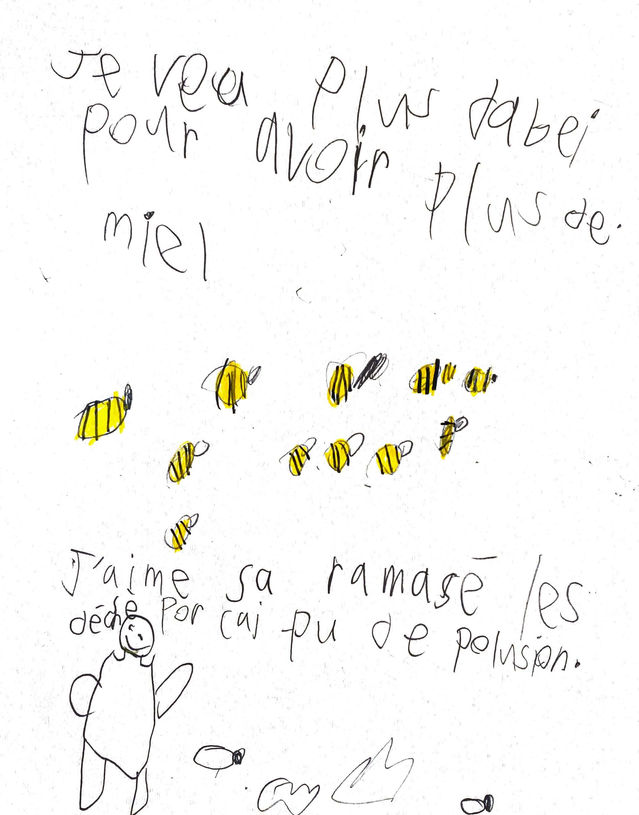 Je veu plus dabei
pour avoir plus de.
miel
J'aime sa ramasé les
déche por cai pu de polusion.